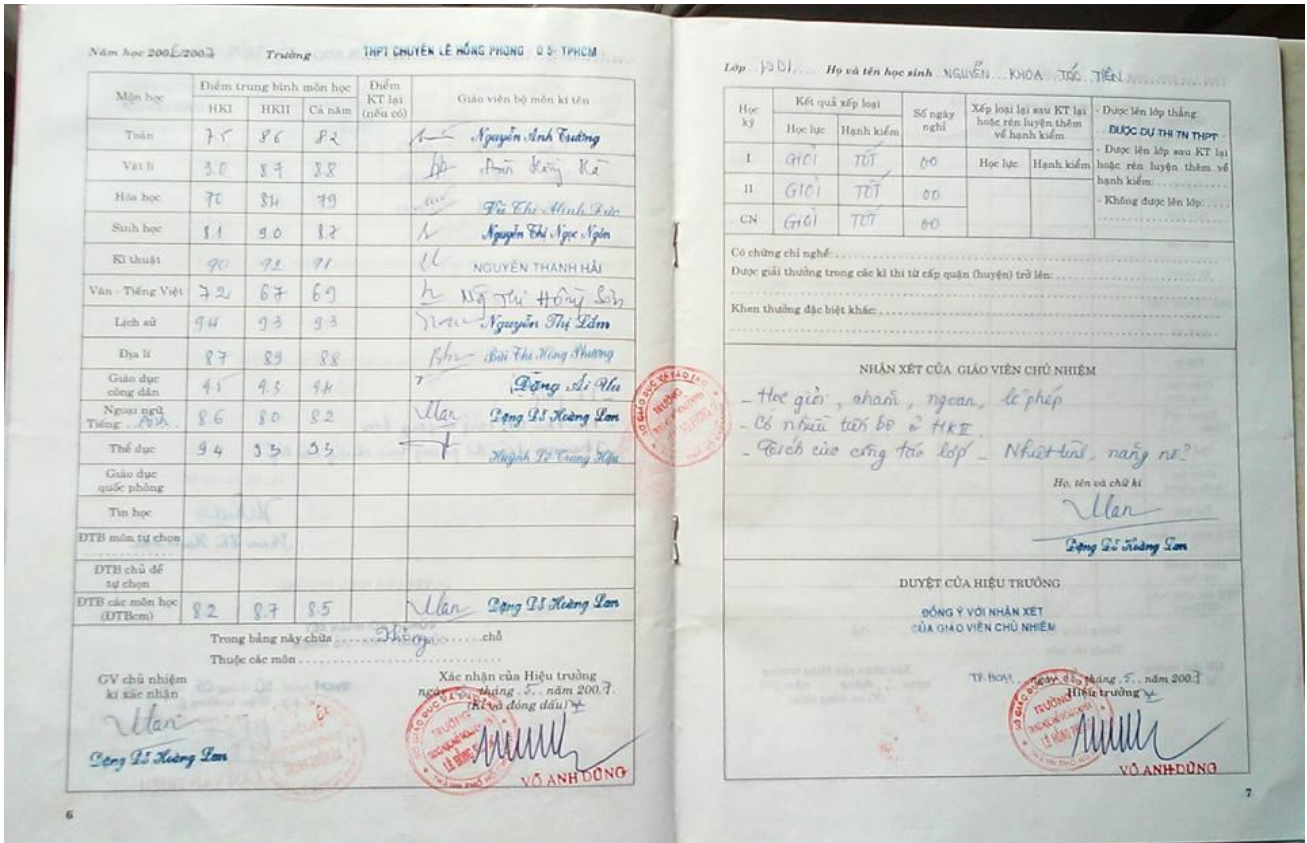 Năm học 2006/2007 Trường THPT CHUYÊN LÊ HỒNG PHONG Q 5- TPHCM
Môn học Điểm trung bình môn học Điểm KT lại (nếu có) Giáo viên bộ môn kí tên
HKI HKII Cả năm
Toán 7.5 8.6 8.2 Nguyễn Anh Trường
Vật lí 9.0 8.7 8.8
Hóa học 7.0 8.4 7.9 Vũ Thị Minh Đức
Sinh học 8.1 9.0 8.7 Nguyễn Thị Ngọc Ngôn
Kĩ thuật 9.0 9.2 9.1 NGUYỄN THANH HẢI
Văn - Tiếng Việt 7.2 6.7 6.9 Ngô Thị Hồng Sơn
Lịch sử 9.4 9.3 9.3 Nguyễn Thị Lắm
Địa lí 8.7 8.9 8.8 Bùi Thị Hồng Phương
Giáo dục công dân 9.5 9.3 9.4 Đặng Ái Vu
Ngoại ngữ
Tiếng: 8.6 8.0 8.2 Man Đặng Dĩ Hoàng Lan
Thể dục 9.4 9.3 9.3 Huỳnh Lê Trung Hậu
Giáo dục quốc phòng
Tin học
ĐTB môn tự chọn
ĐTB chủ đề tự chọn
ĐTB các môn học (ĐTBcm) 8.2 8.7 8.5 Man Đặng Dĩ Hoàng Lan
Trong bảng này chữa Không chỗ
Thuộc các môn
GV chủ nhiệm kí xác nhận
Xác nhận của Hiệu trưởng
ngày tháng 5 năm 2007.
(Kí và đóng dấu)
Đặng Dĩ Hoàng Lan
VÕ ANH DŨNG
6
Lớp 12D1 Họ và tên học sinh NGUYỄN KHOA TÓC TIÊN
Học kỳ Kết quả xếp loại Số ngày nghỉ Xếp loại lại sau KT lại hoặc rèn luyện thêm về hạnh kiểm
Học lực Hạnh kiểm Học lực Hạnh kiểm
I GIỎI TỐT 00
II GIỎI TỐT 00
CN GIỎI TỐT 00
- Được lên lớp thẳng.
ĐƯỢC DỰ THI TN THPT
- Được lên lớp sau KT lại hoặc rèn luyện thêm về hạnh kiểm:
- Không được lên lớp:
Có chứng chỉ nghề:
Được giải thưởng trong các kì thi từ cấp quận (huyện) trở lên:
Khen thưởng đặc biệt khác:
NHẬN XÉT CỦA GIÁO VIÊN CHỦ NHIỆM
- Học giỏi, chăm, ngoan, lễ phép
- Có nhiều tiến bộ ở HKII
- Tích cực công tác lớp - Nhiệt tình, năng nổ.
Họ, tên và chữ kí
Đặng Dĩ Hoàng Lan
DUYỆT CỦA HIỆU TRƯỞNG
ĐỒNG Ý VỚI NHẬN XÉT
CỦA GIÁO VIÊN CHỦ NHIỆM
TP.HCM, ngày tháng 5 năm 2007
Hiệu trưởng
VÕ ANH DŨNG
7